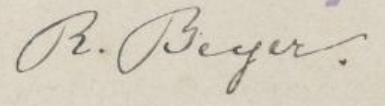 R. Beyer.